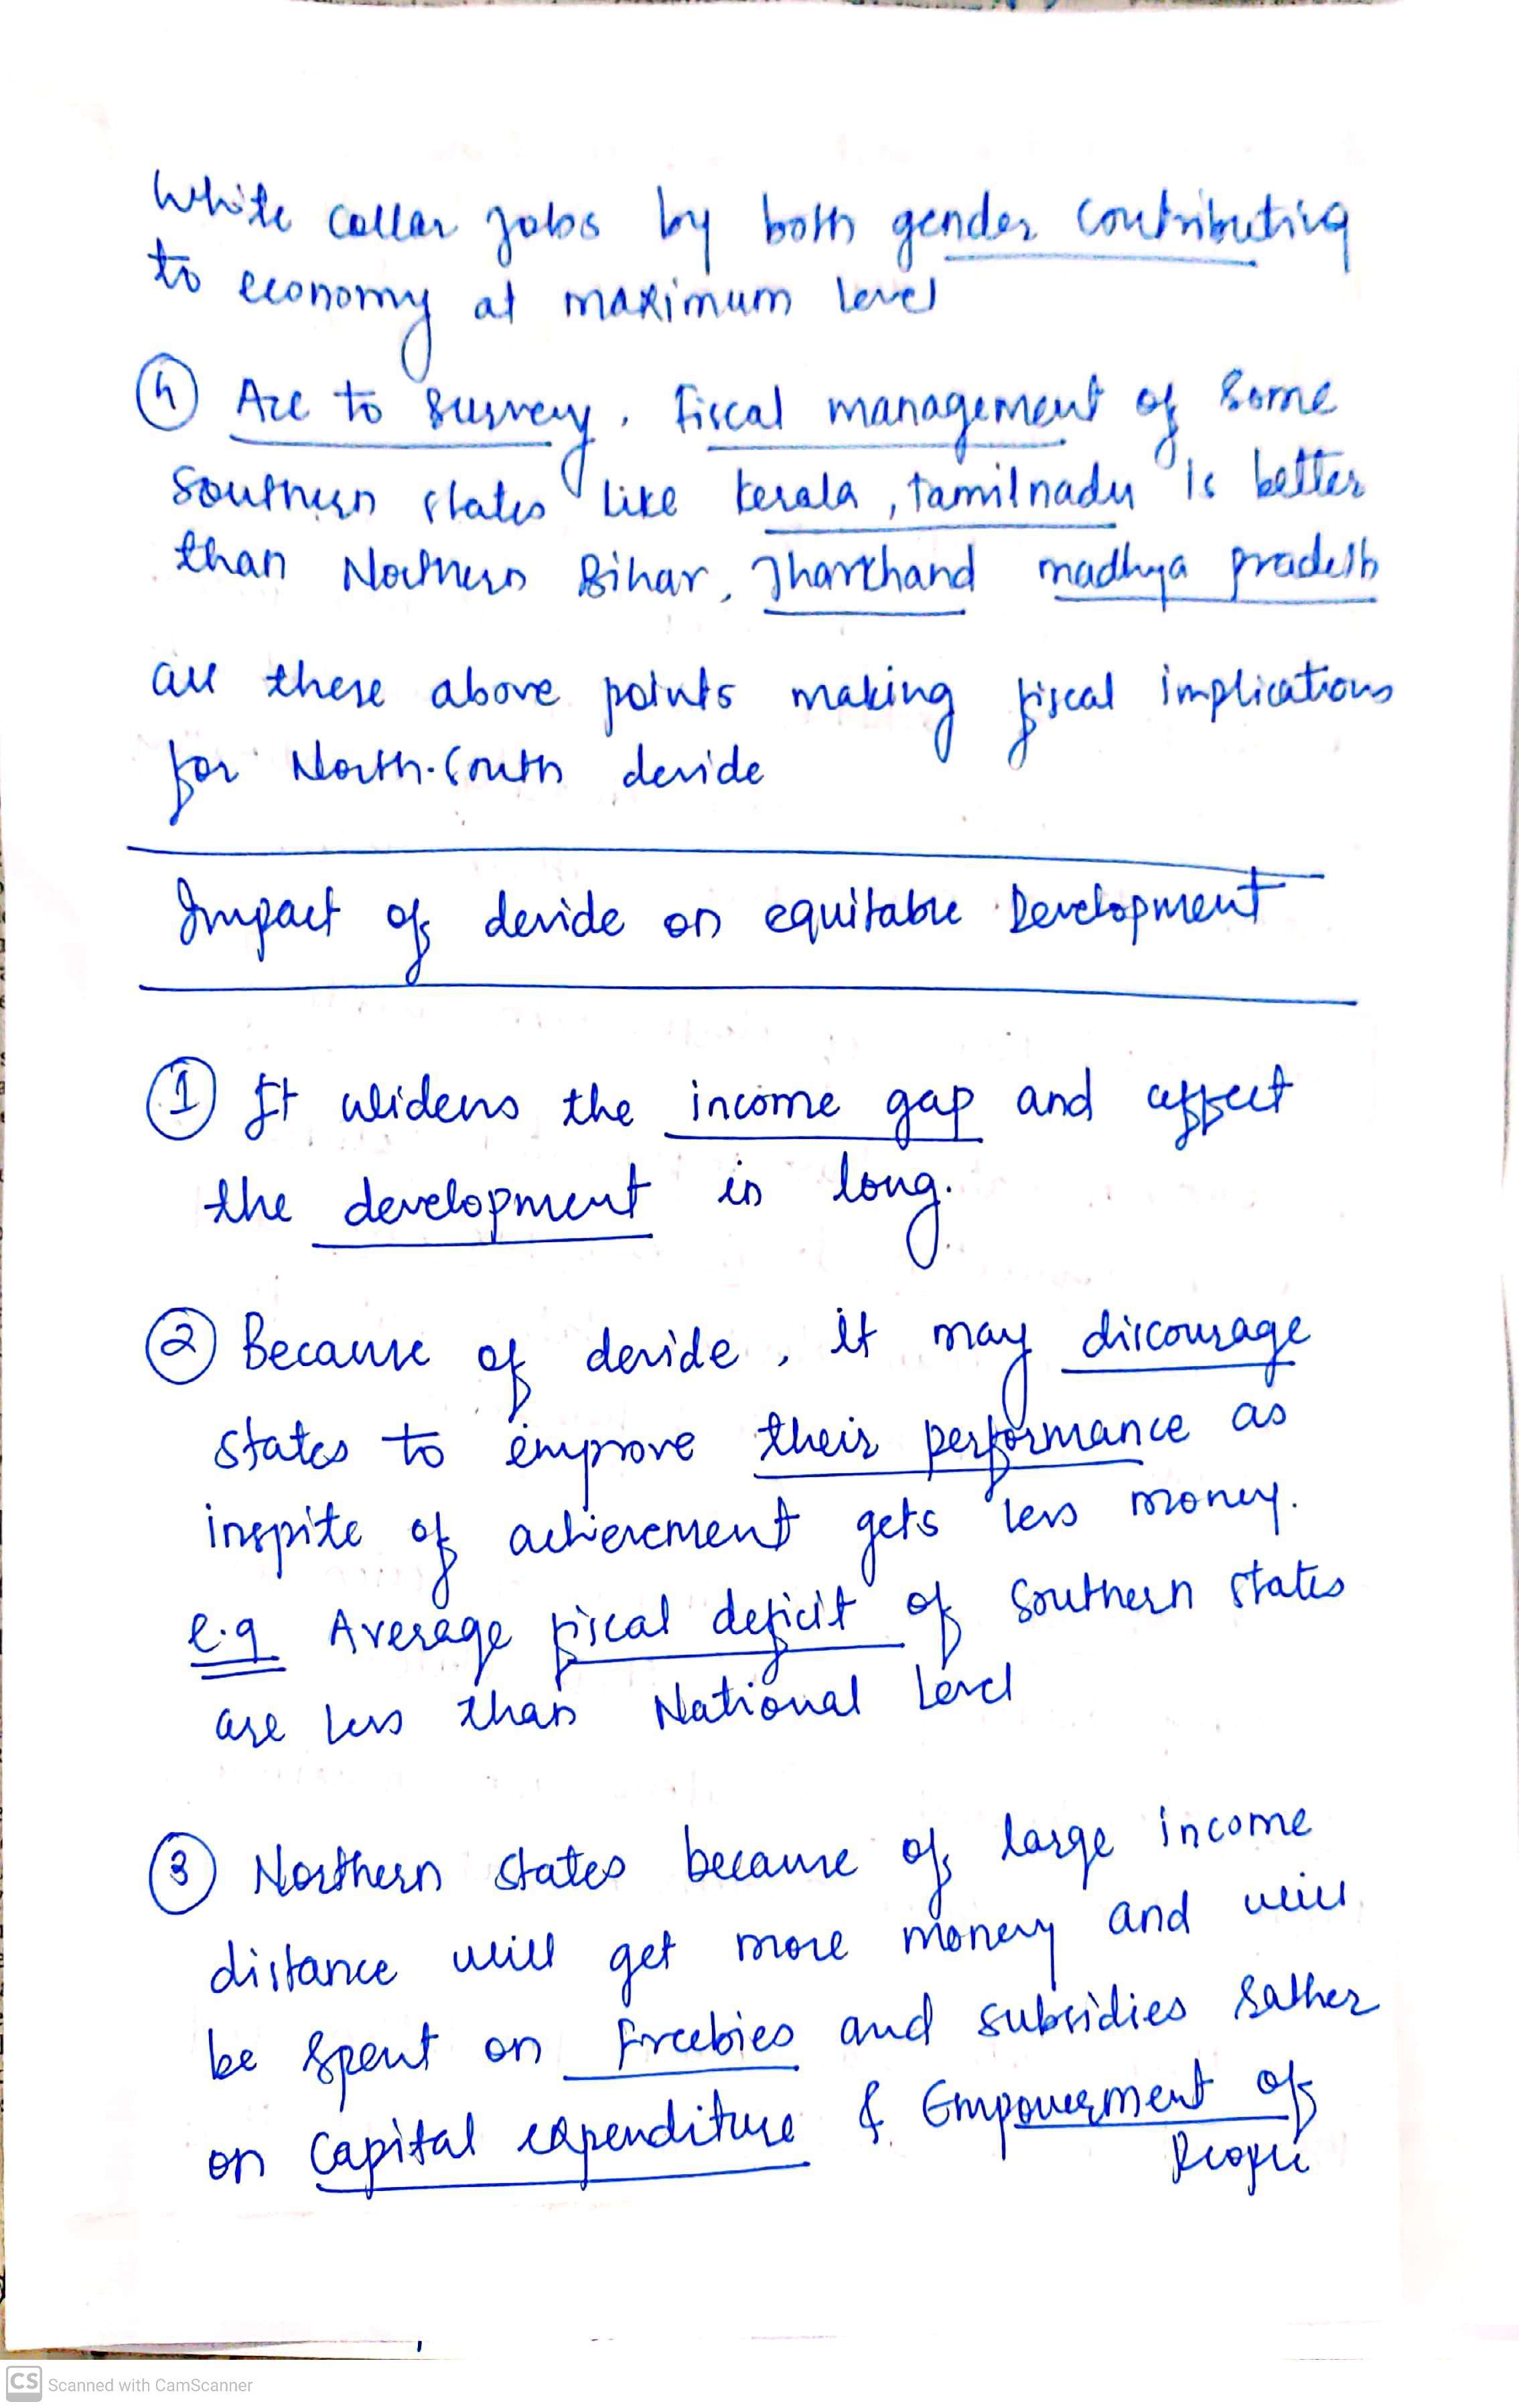 White collar jobs by both gender contributing
to economy at maximum level
④ Acc to survey, fiscal management of some
southern states like kerala, tamilnadu is better
than Northern Bihar, Jharkhand madhya pradesh
all these above points making fiscal implications
for North-South devide
Impact of devide on equitable Development
① It widens the income gap and affect
the development in long.
② Because of devide, it may discourage
states to improve their performance as
inspite of achievement gets less money.
e.g Average fiscal deficit of Southern states
are less than National Level
③ Northern states because of large income
distance will get more money and will
be spent on freebies and subsidies rather
on capital expenditure & Empowerment of
People
CS Scanned with CamScanner